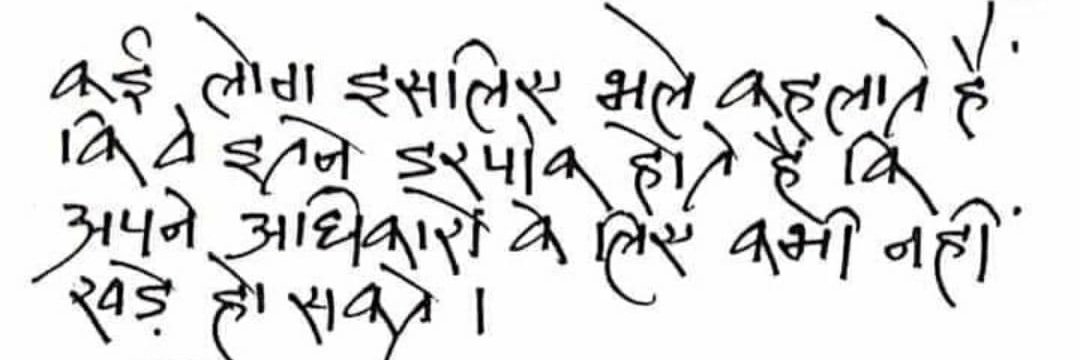 कई लोग इसलिए भले कहलाते हैं
कि वे इतने डरपोक होते हैं कि
अपने अधिकारों के लिए कभी नहीं
खड़े हो सकते ।